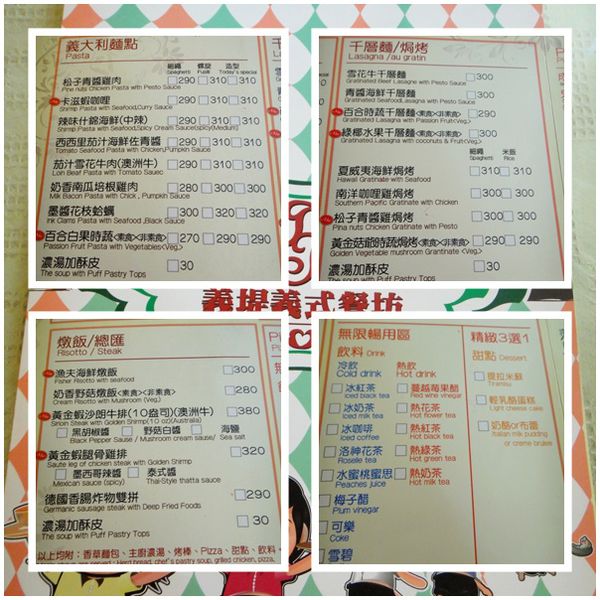 義大利麵點
Pasta
細繩 螺旋 造型
Spaghetti Fusilli Today's special
松子青醬雞肉 290 310 310
Pine nuts Chicken Pasta with Pesto Sauce
卡滋蝦咖哩 290 310 310
Shrimp Pasta with Seafood,Curry Sauce
辣味什錦海鮮(中辣) 290 310 310
Shrimp Pasta with Seafood,Spicy Cream Sauce(spicy)(Medium)
西西里茄汁海鮮佐青醬 290 310 310
Tomato Seafood Pasta with Chicken,Pumpkin Sauce
茄汁雪花牛肉(澳洲牛) 290 310 310
Loin Beef Pasta with Tomato Sauce
奶香南瓜培根雞肉 280 300 300
Milk Bacon Pasta with Chick , Pumpkin Sauce
墨醬花枝蛤蠣 300 320 320
Ink Clams Pasta with Seafood ,Black Sauce
百合白果時蔬<素食><非素食> 270 290 290
Passion Fruit Pasta with Vegetables(Veg.)
濃湯加酥皮 30
The soup with Puff Pastry Tops
千層麵/焗烤
Lasagna /au gratin
雪花牛千層麵 300
Gratinated Beef Lasagne with Pesto Sauce
青醬海鮮千層麵 300
Gratinated SeafoodLasagna with Pesto Sauce
百合時蔬千層麵<素食><非素食> 290
Gratinated Lasagna with Passion Fruit(Veg.)
綠椰水果千層麵<素食><非素食> 300
Gratinated Lasagna with coconuts & Fruit(Veg.)
細繩 米飯
Spaghetti Rice
夏威夷海鮮焗烤 310 310
Hawaii Gratinate with Seafood
南洋咖哩雞焗烤 300 300
Southern Pacific Gratinate with Chicken
松子青醬雞焗烤 300 300
Pina nuts Chicken Gratinate with Pesto
黃金菇爺時蔬焗烤<素食><非素食> 290 290
Golden Vegetable mushroom Grantinate (Veg.)
濃湯加酥皮 30
The soup with Puff Pastry Tops
義堤義式餐坊
燉飯/總匯
Risotto / Steak
漁夫海鮮燉飯 300
Fisher Risotto with seafood
奶香野菇燉飯<素食><非素食> 280
Cream Risotto with Mushroom (Veg.)
黃金蝦沙朗牛排(10盎司)(澳洲牛) 380
Sirion Steak with Golden Shrimp(10 oz)(Australia)
黑胡椒醬 野菇白醬 海鹽
Black Pepper Sause / Mushroom cream sause/ Sea salt
黃金蝦腿骨雞排 320
Saute leg of chicken steak with Golden Shrimp
墨西哥辣醬 泰式醬
Mexican sauce (spicy) Thai-Style thatta sauce
德國香腸炸物雙拼 290
Germanic sausage steak with Deep Fried Foods
濃湯加酥皮 30
The soup with Puff Pastry Tops
以上均附：香草麵包、主廚濃湯、烤棒、Pizza、甜點、飲料
無限暢用區
飲料 Drink
冷飲 熱飲
Cold drink Hot drink
冰紅茶 蔓越莓果醋
Iced black tea Red wine vinegar
冰奶茶 熱花茶
Iced milk tea Hot flower tea
冰咖啡 熱紅茶
Iced coffee Hot black tea
洛神花茶 熱綠茶
Roselle tea Hot green tea
水蜜桃蜜思 熱奶茶
Peaches juice Hot milk tea
梅子醋
Plum vinegar
可樂
Coke
雪碧
精緻3選1
甜點 Dessert
提拉米蘇
Tiramisu
輕乳酪蛋糕
Light cheese cake
奶酪or布蕾
Italian milk pudding
or creme brulee